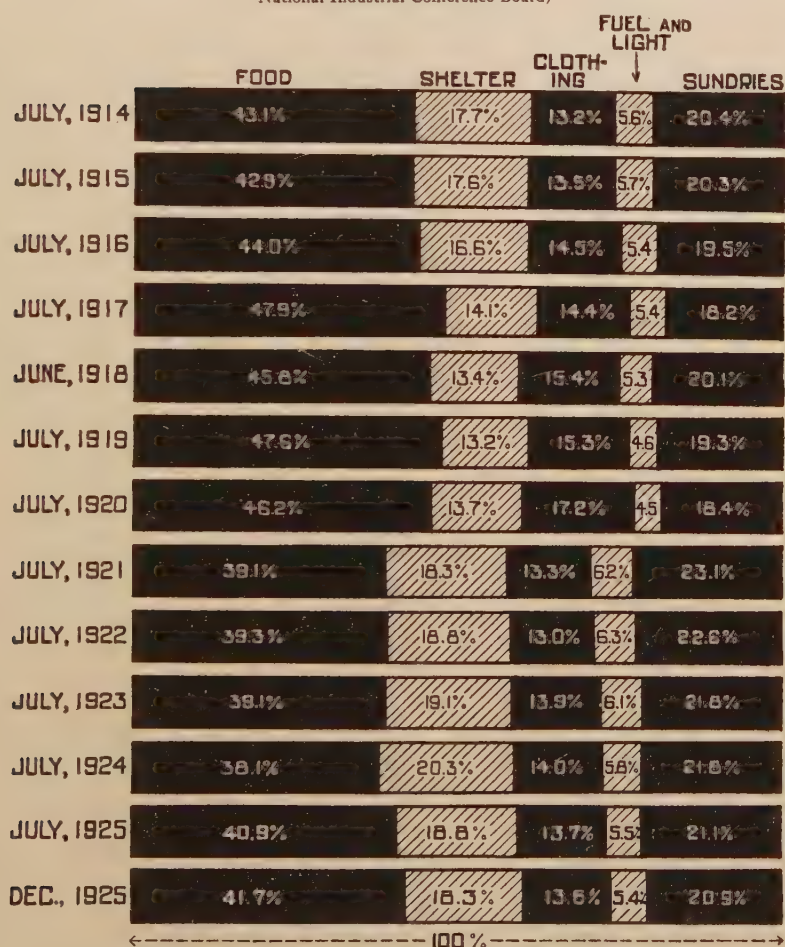 National Industrial Conference Board)
FUEL AND
LIGHT
CLOTH-
ING
FOOD SHELTER SUNDRIES
JULY, 1914 43.1% 17.7% 13.2% 5.6% 20.4%
JULY, 1915 42.9% 17.6% 13.5% 5.7% 20.3%
JULY, 1916 44.0% 16.6% 14.5% 5.4 19.5%
JULY, 1917 47.9% 14.1% 14.4% 5.4 18.2%
JUNE, 1918 45.8% 13.4% 15.4% 5.3 20.1%
JULY, 1919 47.6% 13.2% 15.3% 4.6 19.3%
JULY, 1920 46.2% 13.7% 17.2% 4.5 18.4%
JULY, 1921 39.1% 18.3% 13.3% 6.2% 23.1%
JULY, 1922 39.3% 18.8% 13.0% 6.3% 22.6%
JULY, 1923 39.1% 19.1% 13.9% 6.1% 21.8%
JULY, 1924 38.1% 20.3% 14.0% 5.8% 21.8%
JULY, 1925 40.9% 18.8% 13.7% 5.5% 21.1%
DEC., 1925 41.7% 18.3% 13.6% 5.4% 20.9%
100%